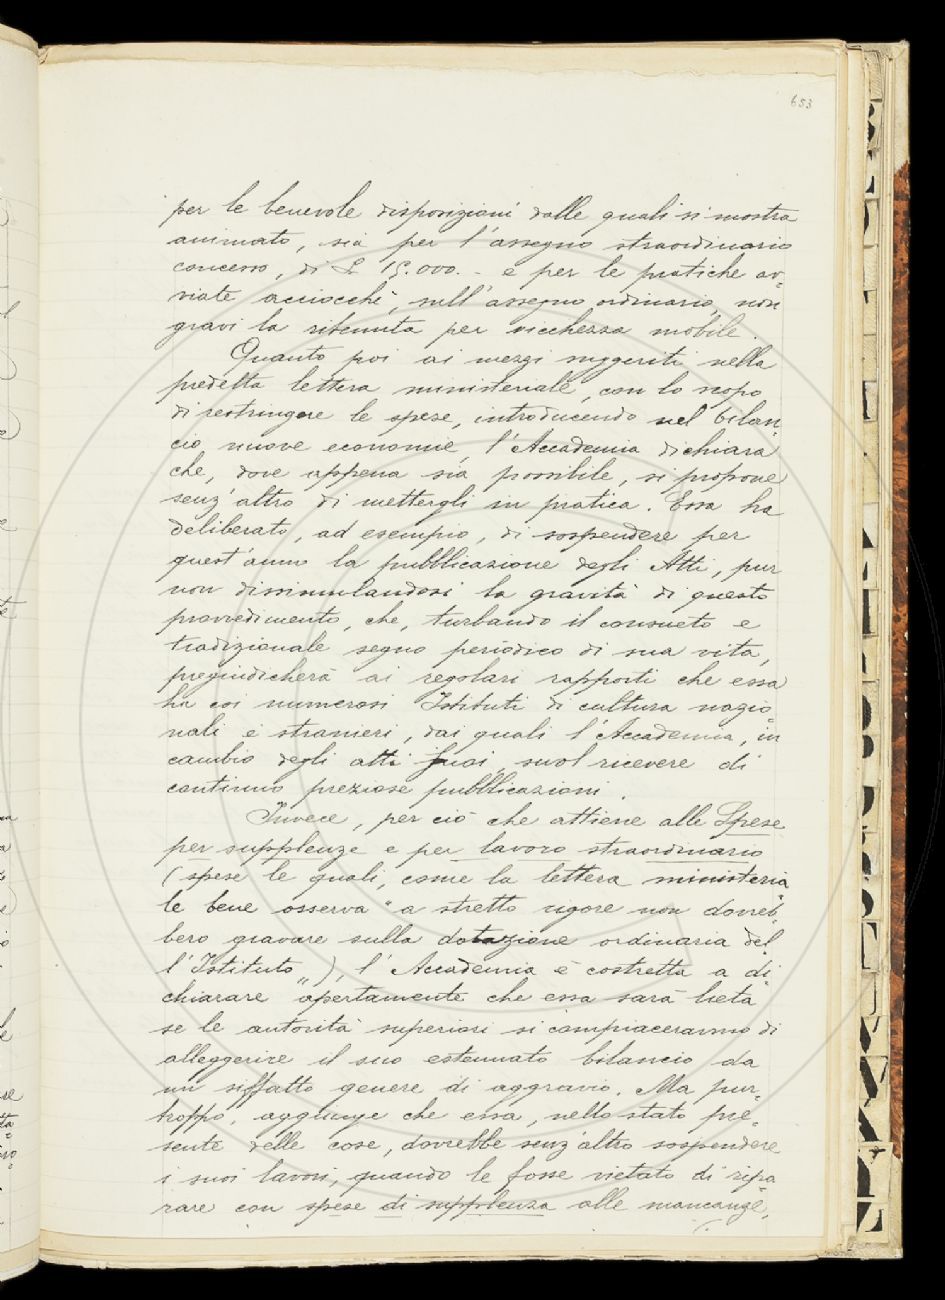 653
per le benevole disposizioni dalle quali si mostra
animato, sia per l'assegno straordinario
concesso, di £ 15.000. - e per le pratiche av-
viate acciocchè, sull'assegno ordinario, non
gravi la ritenuta per ricchezza mobile.
Quanto poi ai mezzi suggeriti nella
predetta lettera ministeriale, con lo scopo
di restringere le spese, introducendo nel bilan-
cio nuove economie, l'Accademia dichiara
che, dove appena sia possibile, si propone
senz'altro di mettergli in pratica. Essa ha
deliberato, ad esempio, di sospendere per
quest'anno la pubblicazione degli Atti, pur
non dissimulandosi la gravità di questo
provvedimento, che, turbando il consueto e
tradizionale segno periodico di sua vita,
pregiudicherà ai regolari rapporti che essa
ha coi numerosi Istituti di cultura nazio-
nali e stranieri, dai quali l'Accademia, in
cambio degli atti suoi, suol ricevere di
continuo preziose pubblicazioni.
Invece, per ciò che attiene alle Spese
per supplenze e per lavoro straordinario
(spese le quali, come la lettera ministeria-
le bene osserva "a stretto rigore non dovreb-
bero gravare sulla dotazione ordinaria del
l'Istituto„), l'Accademia è costretta a di-
chiarare apertamente che essa sarà lieta
se le autorità superiori si compiaceranno di
alleggerire il suo estenuato bilancio da
un siffatto genere di aggravio. Ma pur-
troppo, aggiunge che essa, nello stato pre-
sente delle cose, dovrebbe senz'altro sospendere
i suoi lavori, quando le fosse vietato di ripa-
rare con spese di supplenza alle mancanze,